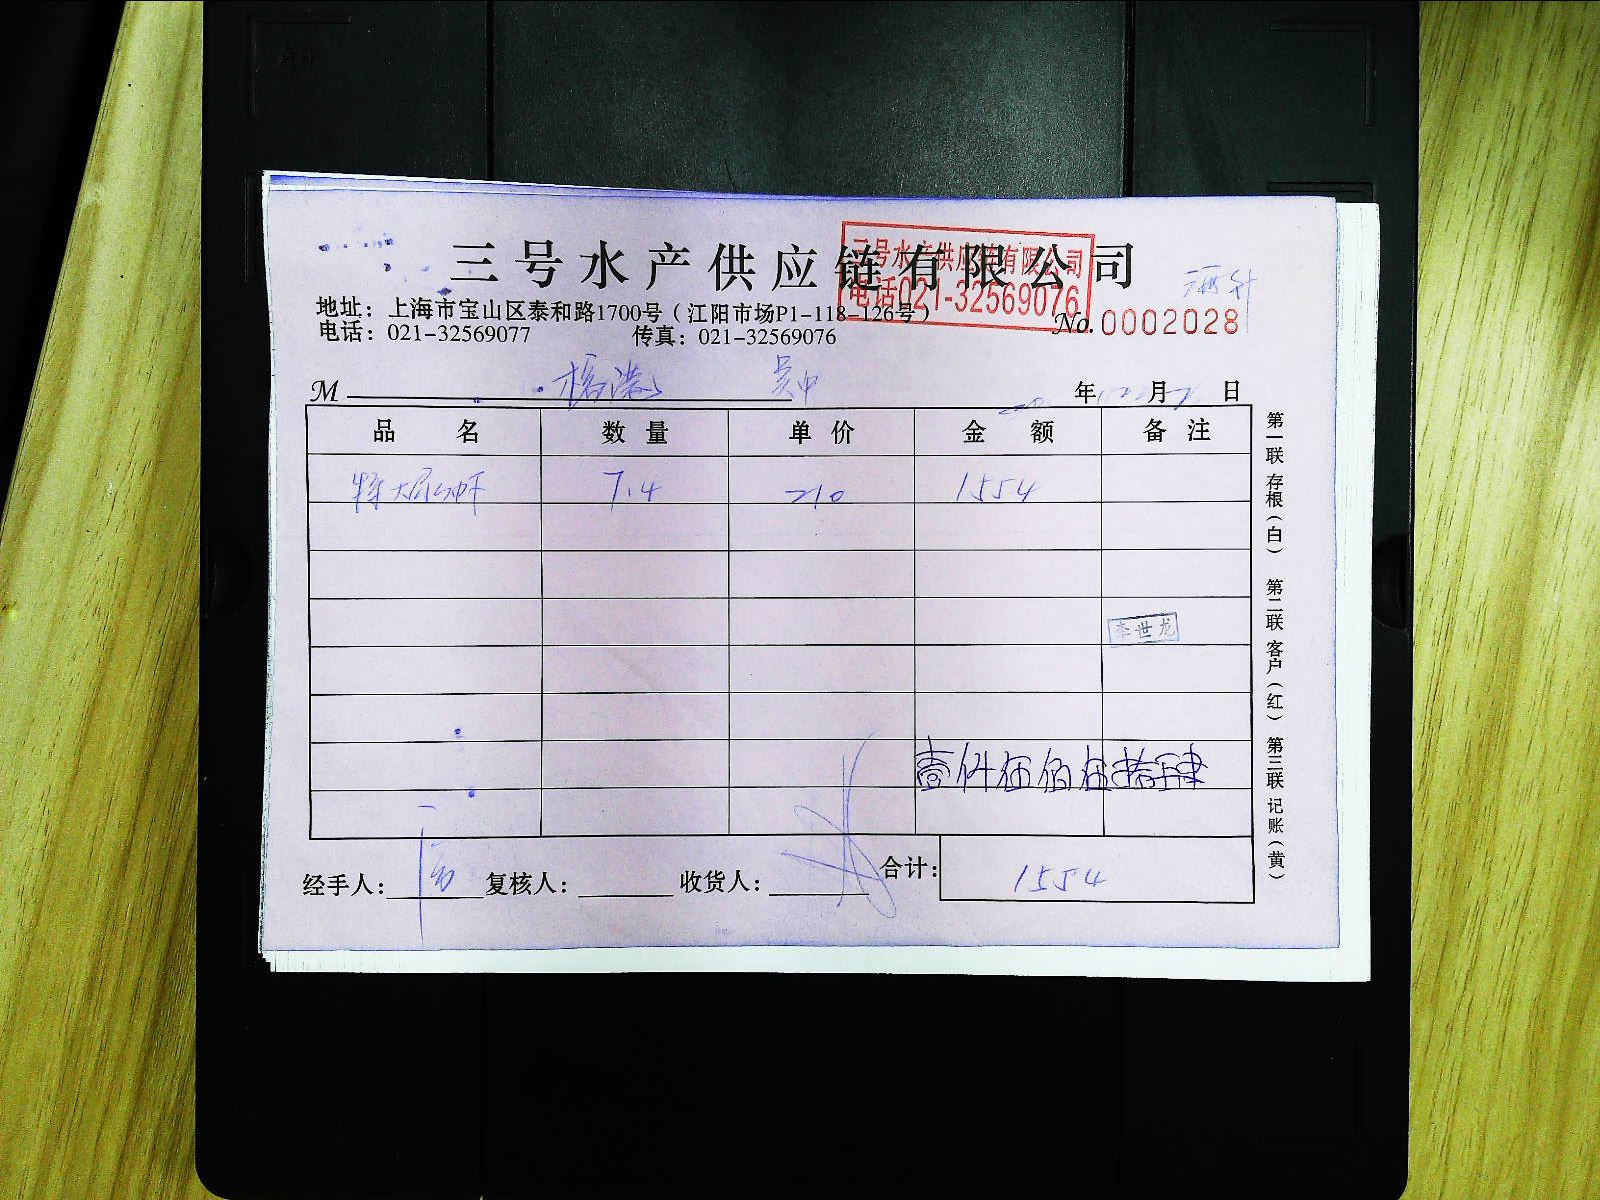 三号水产供应链有限公司
三号水产供应链有限公司
电话021-32569076
地址：上海市宝山区泰和路1700号（江阳市场P1-118-126号）
电话：021-32569077 传真：021-32569076
No.0002028
M 吴中 年 月 日
品名 数量 单价 金额 备注
特大 7.4 210 1554
李世龙
壹仟伍佰伍拾肆
经手人： 复核人： 收货人： 合计： 1554
第一联 存根（白） 第二联 客户（红） 第三联 记账（黄）